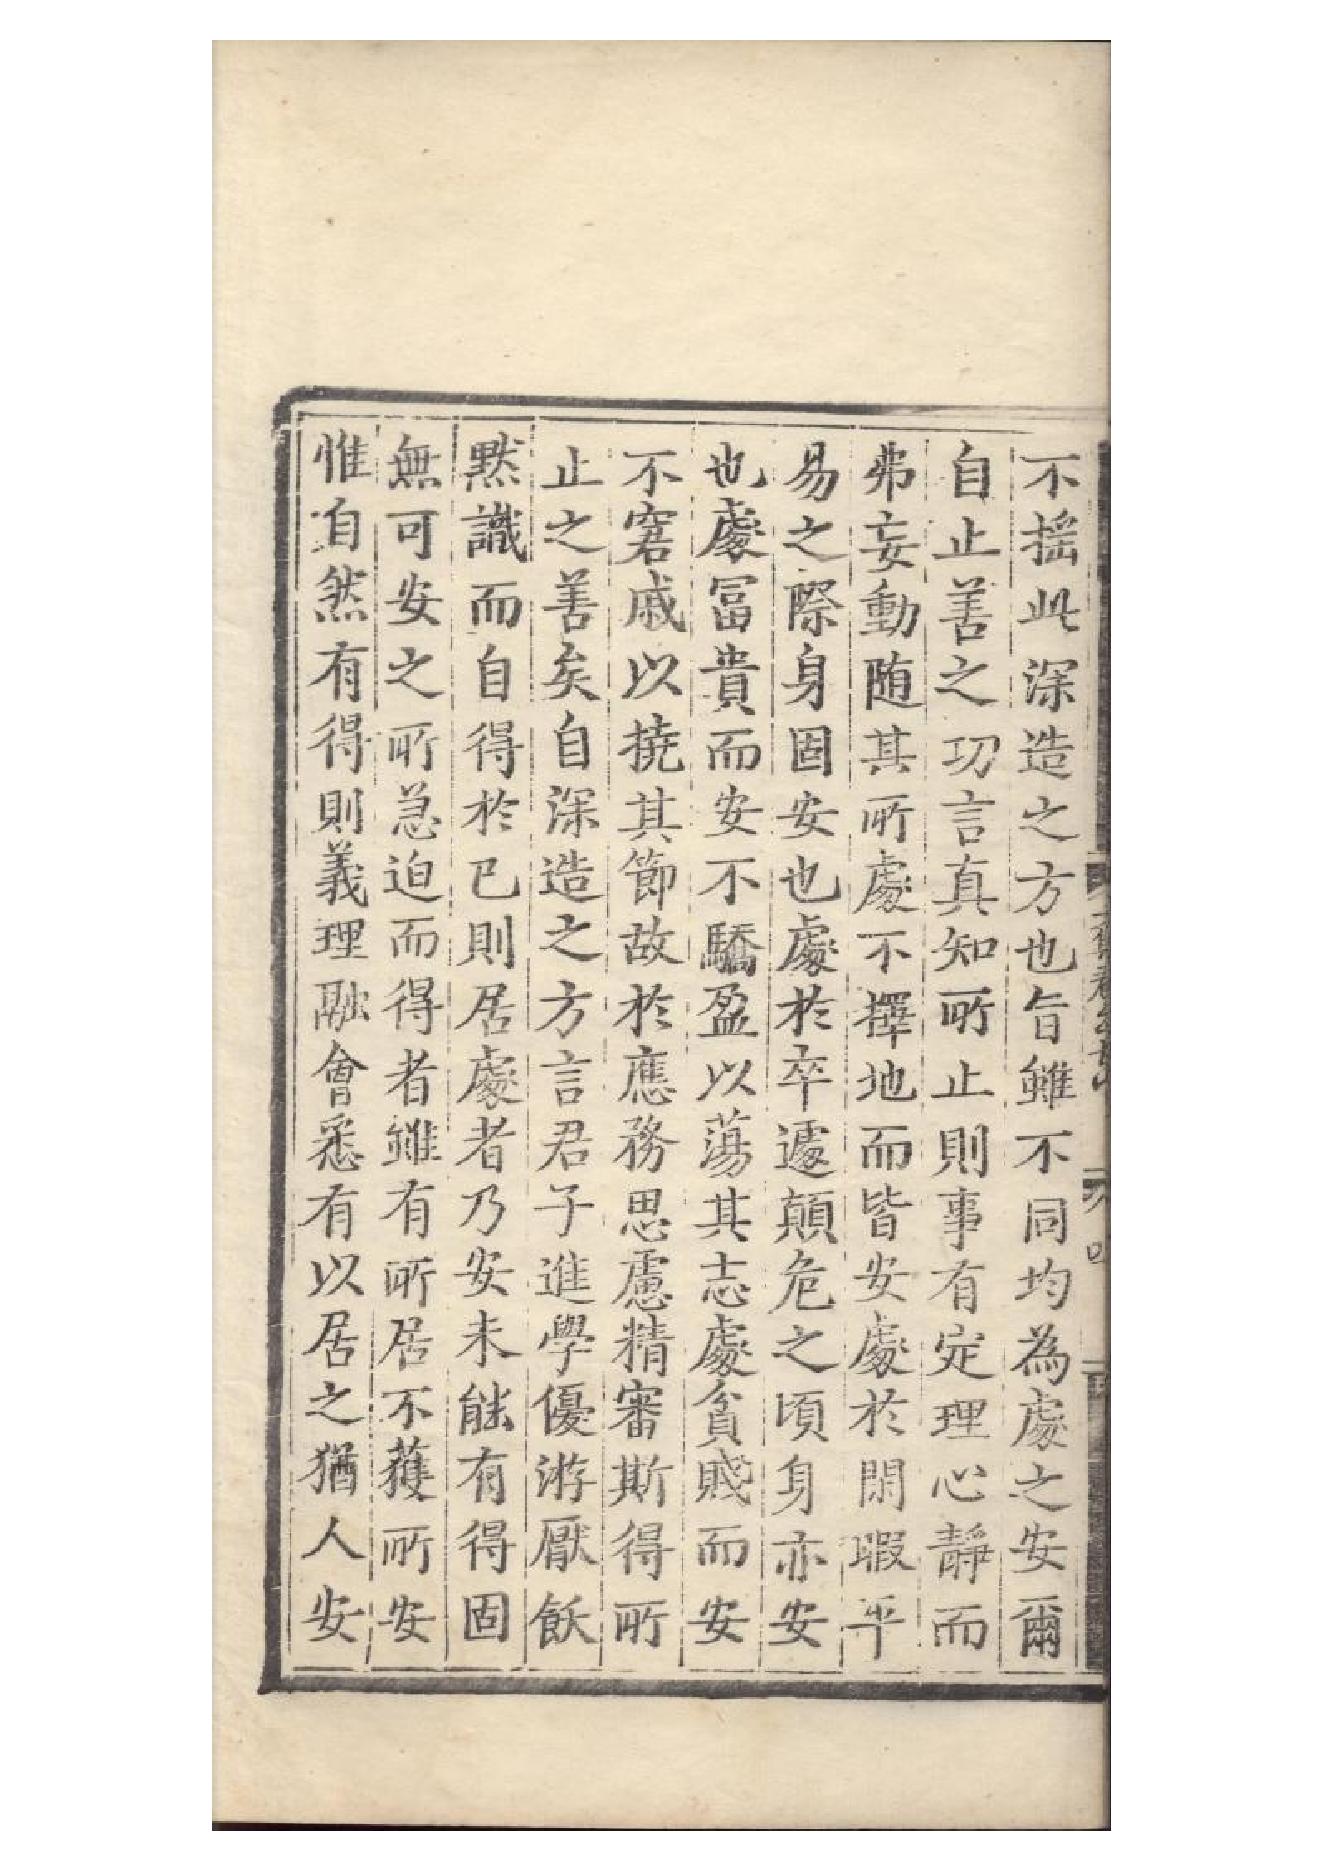 不揺此深造之方也旨雖不同均為處之安爾
自止善之功言真知所止則事有定理心靜而
弗妄動随其所處不擇地而皆安處於閒暇平
易之際身固安也處於卒遽顛危之頃身亦安
也處冨貴而安不驕盈以蕩其志處貧賤而安
不窘戚以撓其節故於應務思慮精審斯得所
止之善矣自深造之方言君子進學優游厭飫
黙識而自得於已則居處者乃安未能有得固
無可安之所急迫而得者雖有所居不獲所安
惟自然有得則義理融會悉有以居之猶人安